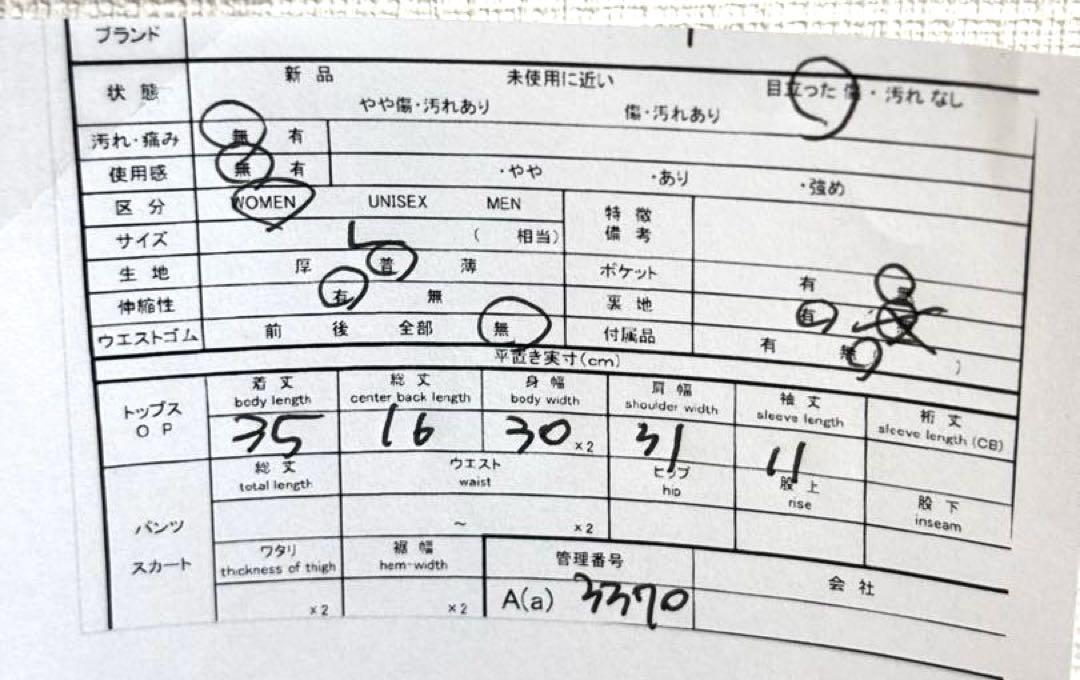 ブランド
状態 新品 未使用に近い 目立った傷・汚れなし
やや傷・汚れあり 傷・汚れあり
汚れ・痛み 無 有
使用感 無 有 ・やや ・あり ・強め
区分 WOMEN UNISEX MEN 特徴
備考
サイズ L ( 相当)
生地 厚 普 薄 ポケット 有 無
伸縮性 有 無 裏地 有
ウエストゴム 前 後 全部 無 付属品 有 無( )
平置き実寸(cm)
トップス
OP
着丈 総丈 身幅 肩幅 袖丈 裄丈
body length center back length body width shoulder width sleeve length sleeve length (CB)
35 16 30 ×2 31 11
パンツ
スカート
総丈 ウエスト ヒップ 股上 股下
total length waist hip rise inseam
~ ×2
ワタリ 裾幅 管理番号 会社
thickness of thigh hem-width
×2 ×2 A(a) 3370